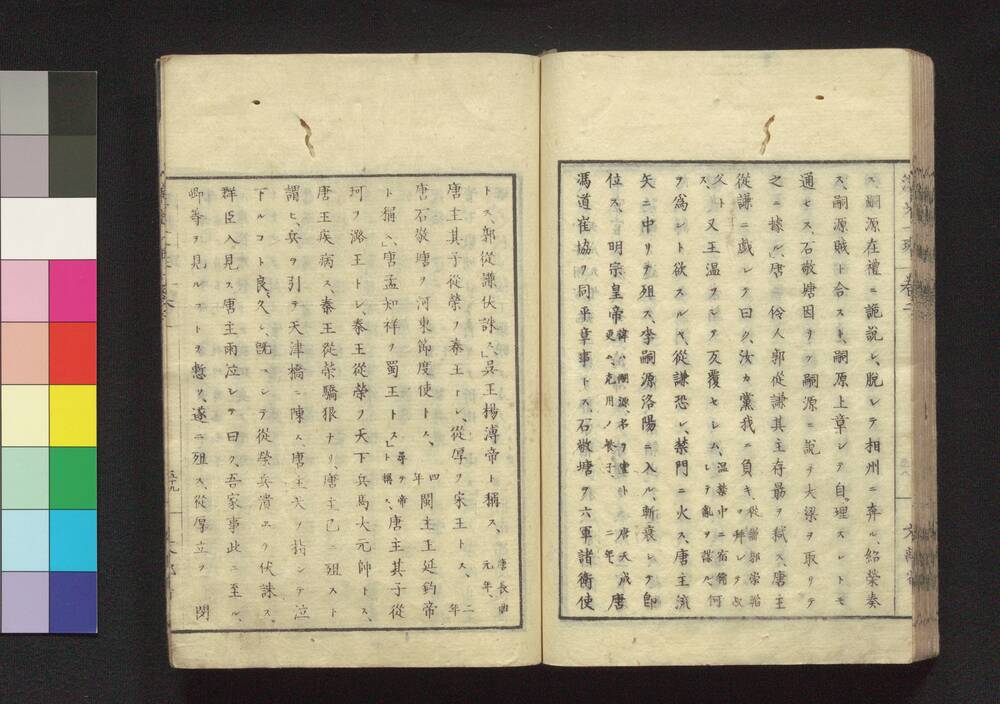 ス、嗣源在禮ニ詭說シ、脫レテ相州ニ奔ル、紹榮奏
ス、嗣源賊ト合スト、嗣原上章シテ自理スレトモ
通セス、石敬塘因リテ嗣源ニ說テ大梁ヲ取リテ
之ニ據ル、唐ノ伶人郭從謙其主存勗ヲ弑ス、唐主
從謙ニ戯レテ曰ク、汝カ黨我ニ負キ、從謙郭崇韜ヲ拜シテ
父ト ス、又王溫ヲシテ反覆セシム、溫禁中ニ宿衛シテ亂ヲ謀ル、何
ヲ爲ント欲スルヤ、從謙恐レ、禁門ニ火ス、唐主流
矢ニ中リテ殂ス、李嗣源洛陽ニ入ル、斬衰シテ卽
位ス、明宗皇帝 諱ハ嗣源、名ヲ亶ト更ム、克用ノ養子、 唐天成二年、唐
馮道崔協ヲ同平章事トス、石敬塘ヲ六軍諸衛使
トス、郭從謙伏誅ス」吳王楊溥帝ト稱ス、唐長興元年、
唐主其子從榮ヲ秦王トシ、從厚ヲ宋王トス、二年
唐石敬塘ヲ河東節度使トス、四年閩主王延鈞帝
ト稱ス」唐孟知祥ヲ蜀王トス」尋テ帝ト稱ス、唐主其子從
珂ヲ潞王トシ、秦王從榮ヲ天下兵馬大元帥トス、
唐王疾病ス、秦王從榮驕狠ナリ、唐主已ニ殂スト
謂ヒ、兵ヲ引テ天津橋ニ陳ス、唐主天ヲ指シテ泣
下ルコト良久シ、旣ニシテ從榮兵潰エテ伏誅ス、
群臣入見ス唐主雨泣シテ曰ク、吾家事此ニ至ル、
卿等ヲ見ルストヲ慙ツ、遂ニ殂ス、從厚立ツ 閔